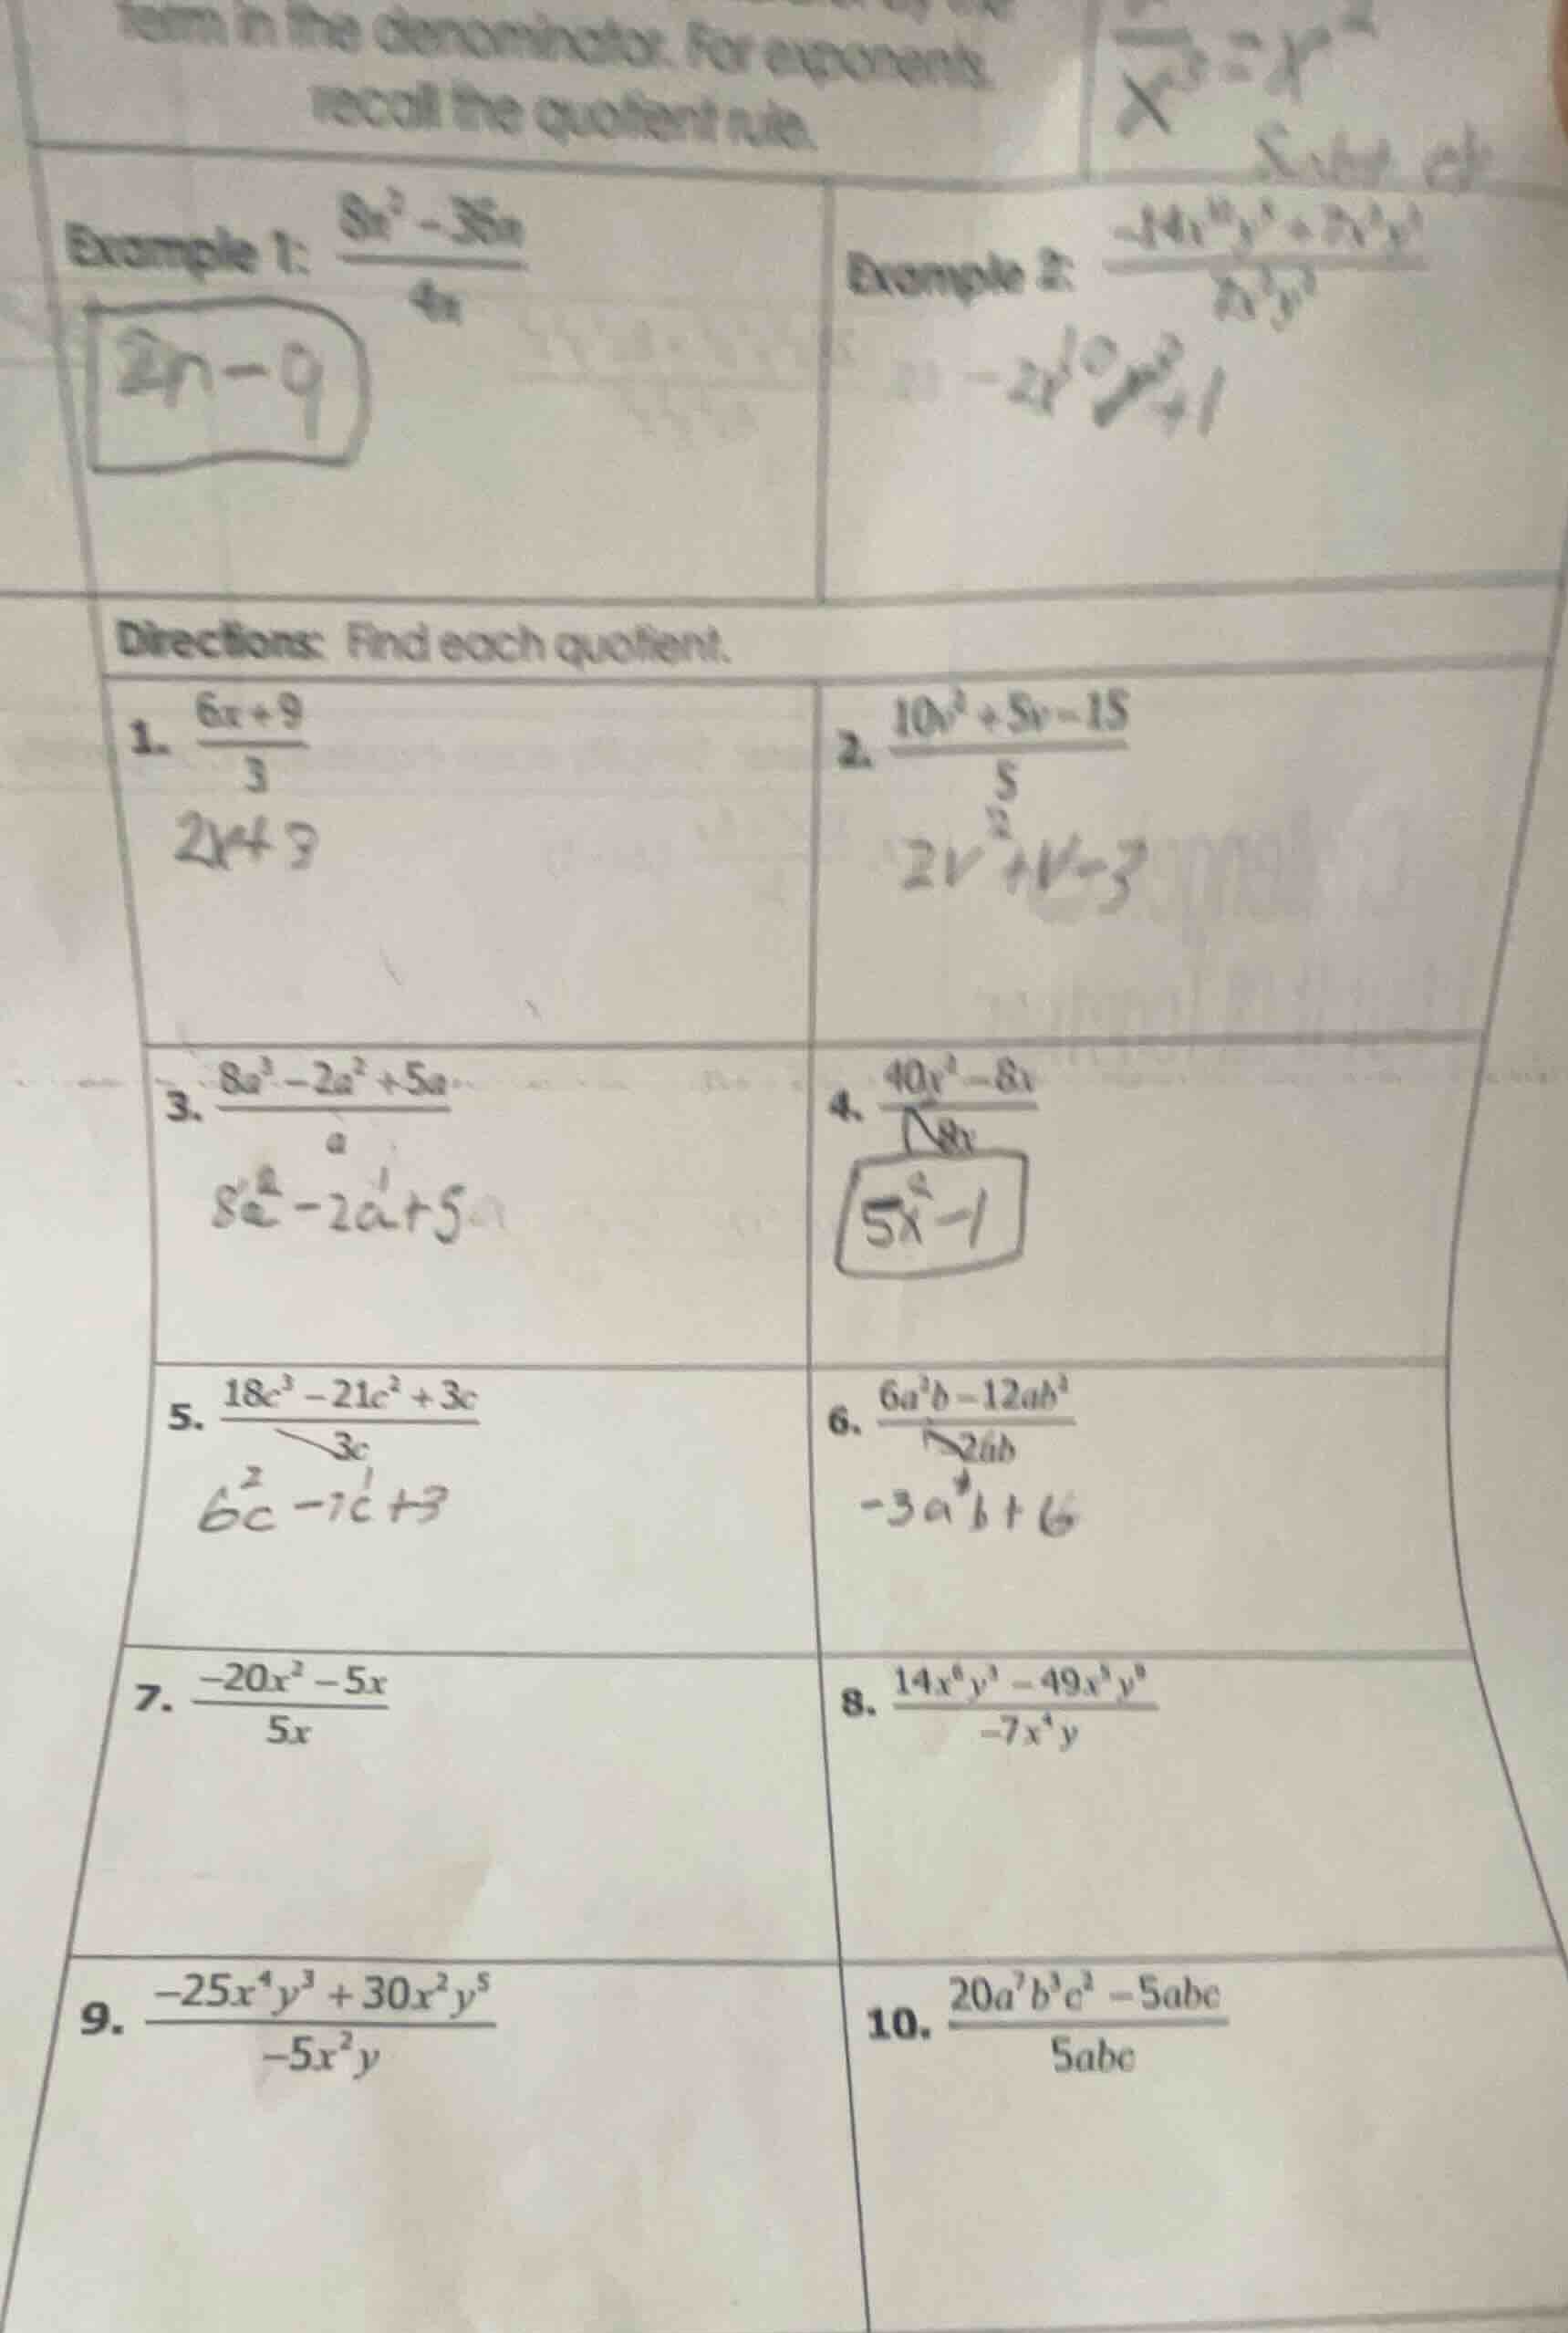 term in the denominator. For exponents,
recall the quotient rule.
x³ = x²
Example 1: (8n² - 36n)/(4n)
2n - 9
Example 2:
+1
Directions: Find each quotient.
1. (6x + 9)/3
2x + 3
2. (10v² + 5v - 15)/5
2v² + v - 3
3. (8a³ - 2a² + 5a)/a
8a² - 2a¹ + 5
4. (40x³ - 8x)/(8x)
5x² - 1
5. (18c³ - 21c² + 3c)/(3c)
6c² - 7c¹ + 3
6. /2ab
-3a b + 6
7. (-20x² - 5x)/(5x)
8. (14x⁶y³ - 49x⁵y⁸)/(-7x⁴y)
9. (-25x⁴y³ + 30x²y⁵)/(-5x²y)
10. (20a⁷b³c² - 5abc)/(5abc)